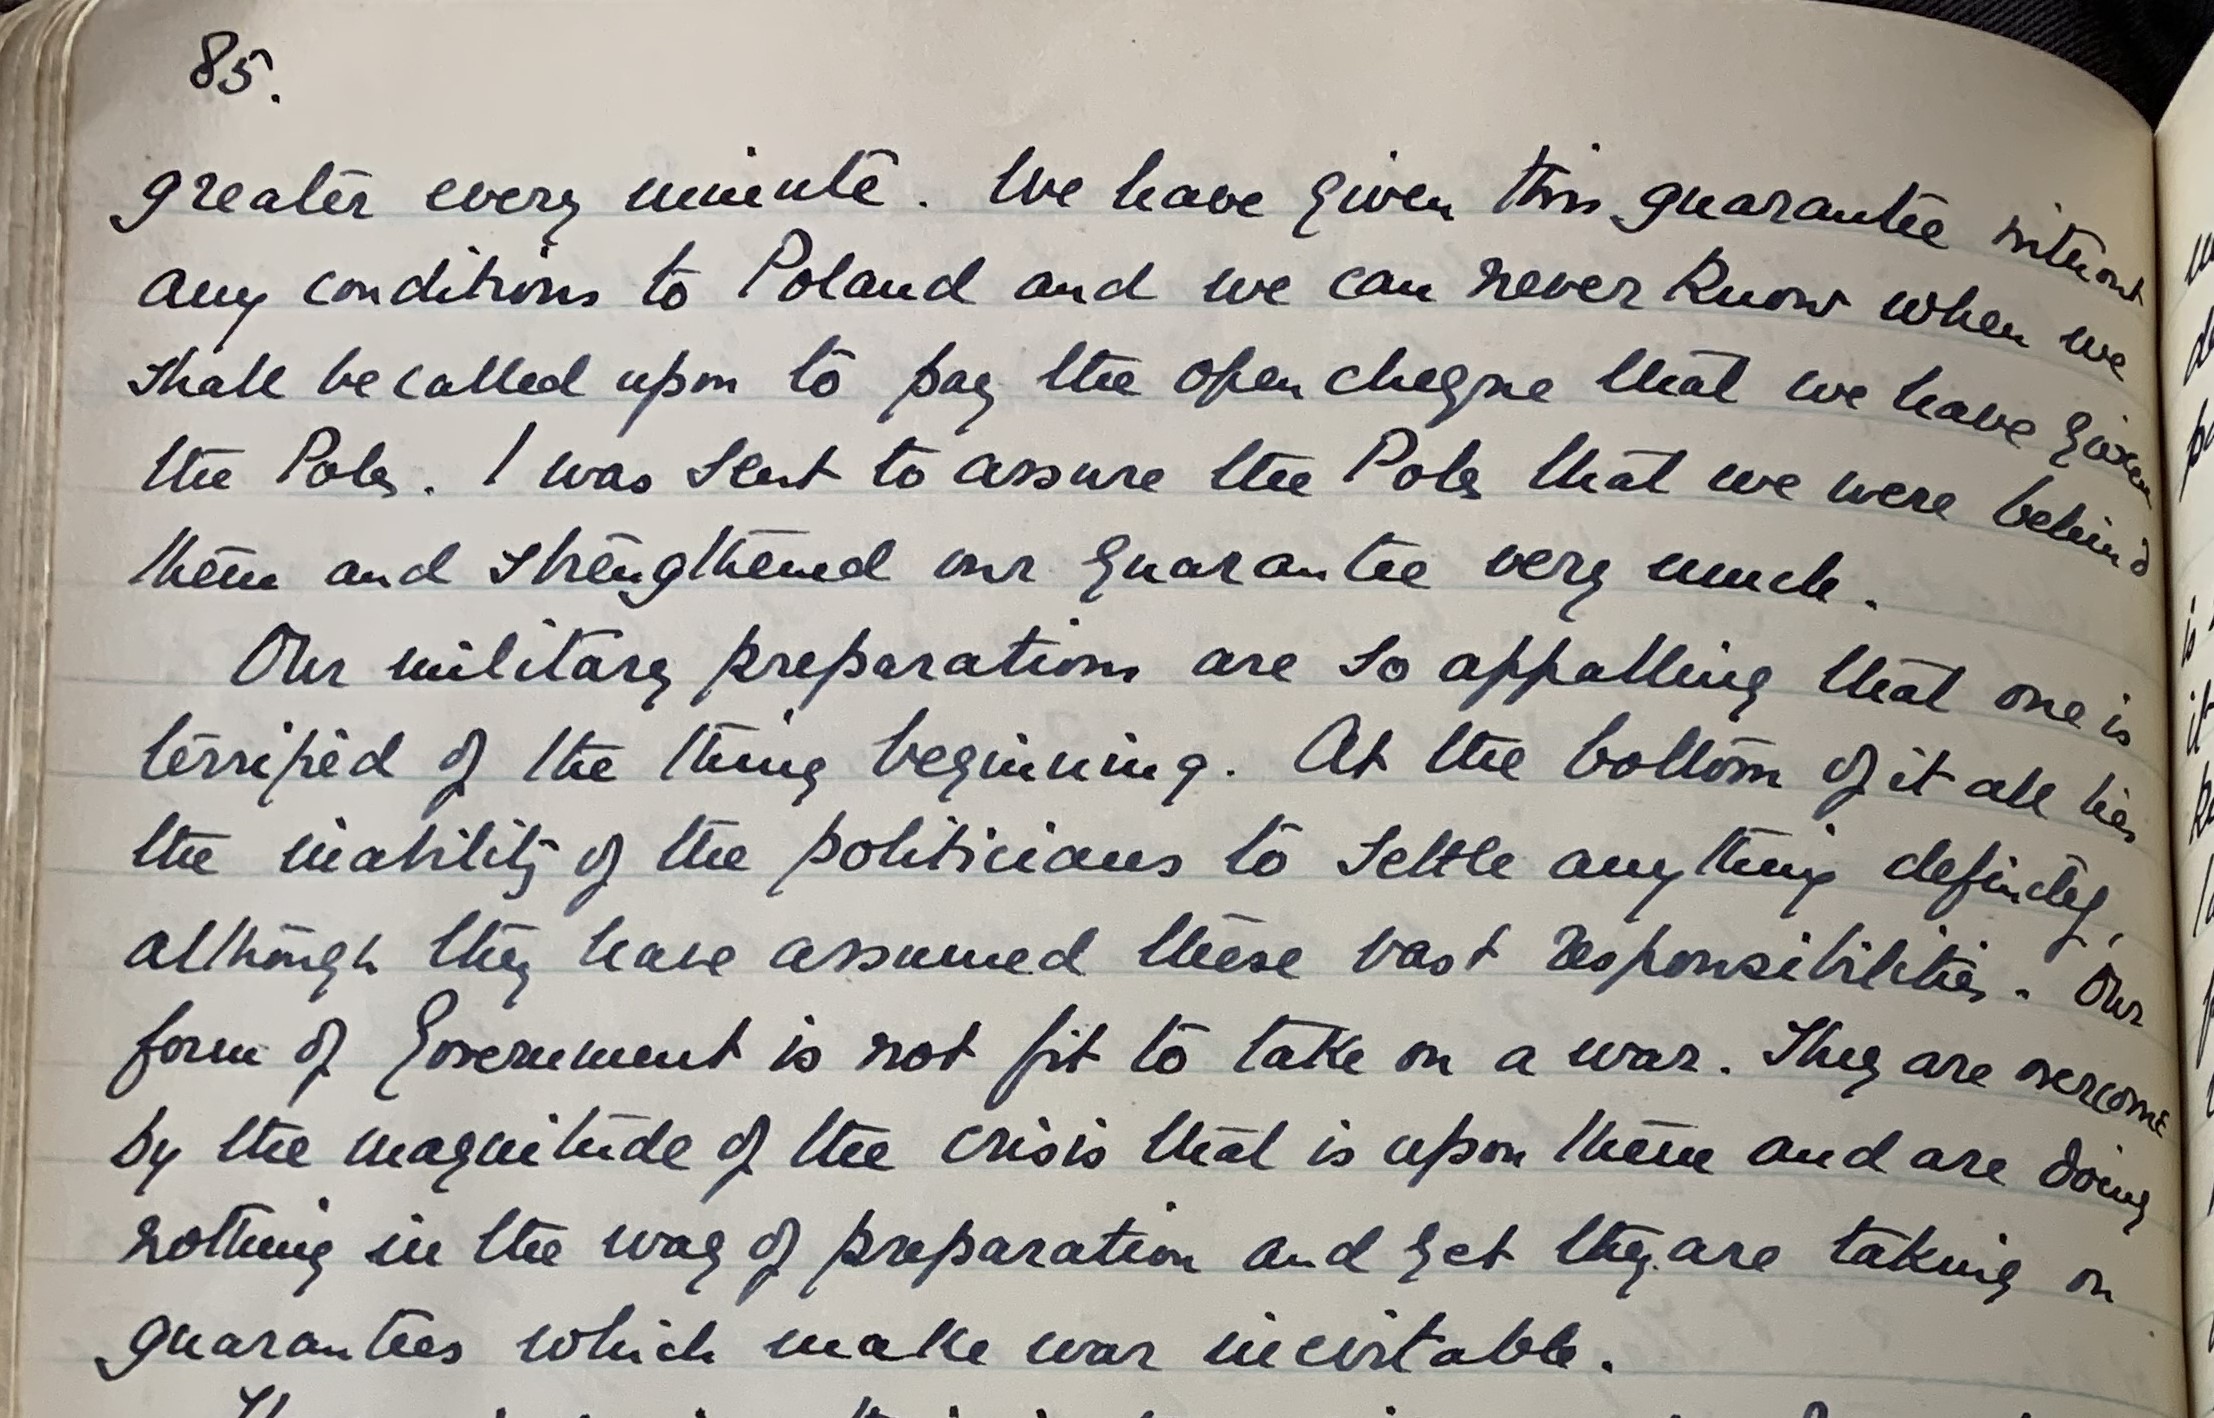 85.
greater every minute. We have given this guarantee without
any conditions to Poland and we can never know when we
shall be called upon to pay the open cheque that we have given
the Poles. I was sent to assure the Poles that we were behind
them and strengthened our guarantee very much.
Our military preparations are so appalling that one is
terrified of the thing beginning. At the bottom of it all lies
the inability of the politicians to settle anything definitely,
although they have assumed these vast responsibilities. Our
form of Government is not fit to take on a war. They are overcome
by the magnitude of the crisis that is upon them and are doing
nothing in the way of preparation and yet they are taking on
guarantees which make war inevitable.